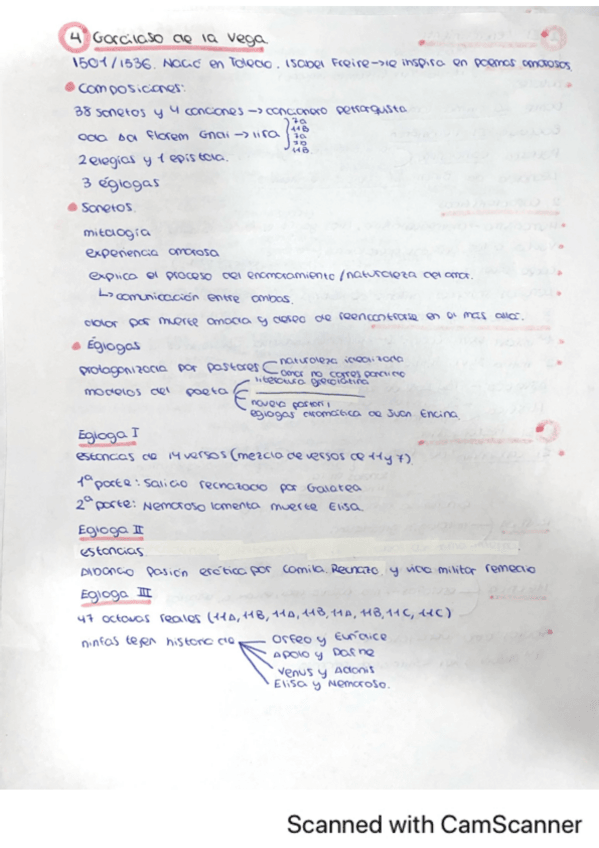 4 Garcilaso de la Vega
1501/1536. Nació en Toledo. Isabel Freire→le inspira en poemas amorosos.
Composiciones:
38 sonetos y 4 canciones → cancionero petrarquista
oda ad florem Gnidi → lira
7a
11B
7a
7b
11B
2 elegías y 1 epístola.
3 églogas
Sonetos.
mitología
experiencia amorosa
explica el proceso del enamoramiento/naturaleza del amor.
↳comunicación entre ambos.
dolor por muerte amada y deseo de reencontrarse en el más allá.
Églogas
protagonizada por pastores
naturaleza idealizada
amor no correspondido
modelos del poeta
literatura grecolatina
novela pastoril
églogas dramática de Juan Encina.
Egloga I
estancias de 14 versos (mezcla de versos de 11 y 7).
1ª parte: Salicio rechazado por Galatea
2ª parte: Nemoroso lamenta muerte Elisa.
Egloga II
estancias
Albanco pasión erótica por Camila. Rechazo. y vida militar remedio
Egloga III
47 octavas reales (11A, 11B, 11A, 11B, 11A, 11B, 11C, 11C)
ninfas tejen historia de
Orfeo y Eurídice
Apolo y Dafne
Venus y Adonis
Elisa y Nemoroso.
Scanned with CamScanner